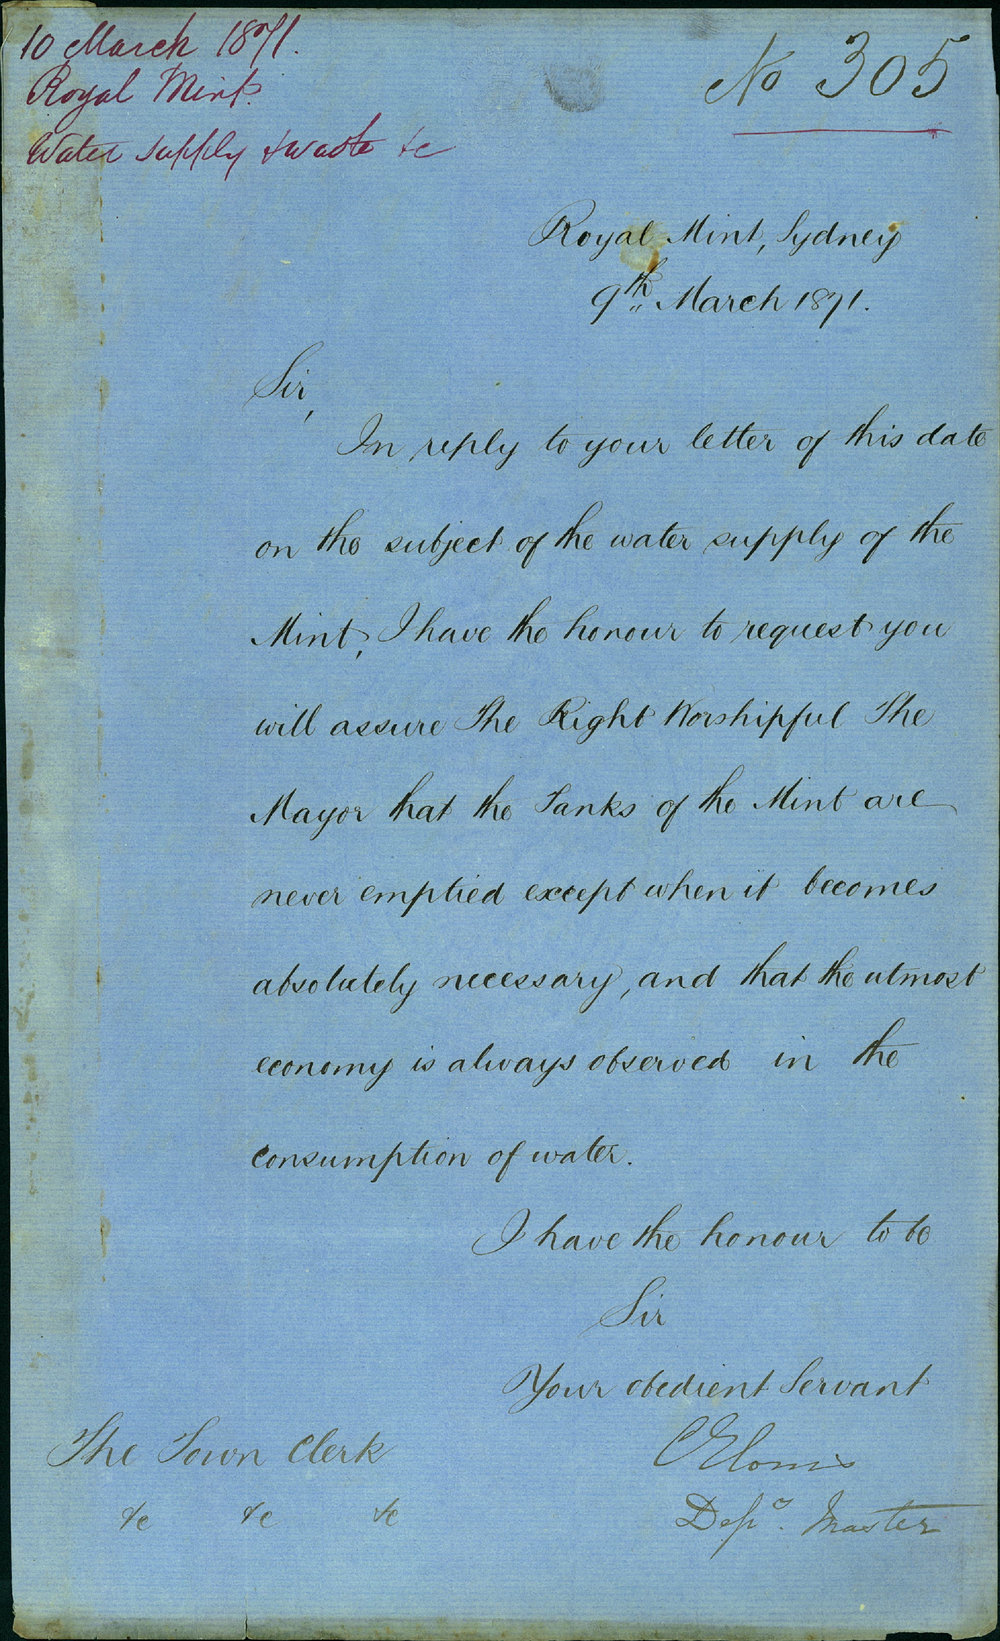 10 March 1871.
Royal Mint.
Water supply & waste &c
No 305
Royal Mint, Sydney
9th March 1871.
Sir,
In reply to your letter of this date
on the subject of the water supply of the
Mint, I have the honour to request you
will assure The Right Worshipful The
Mayor that the Tanks of the Mint are
never emptied except when it becomes
absolutely necessary, and that the utmost
economy is always observed in the
consumption of water.
I have the honour to be
Sir
Your obedient Servant
The Town Clerk
&c &c &c
Depy. Master